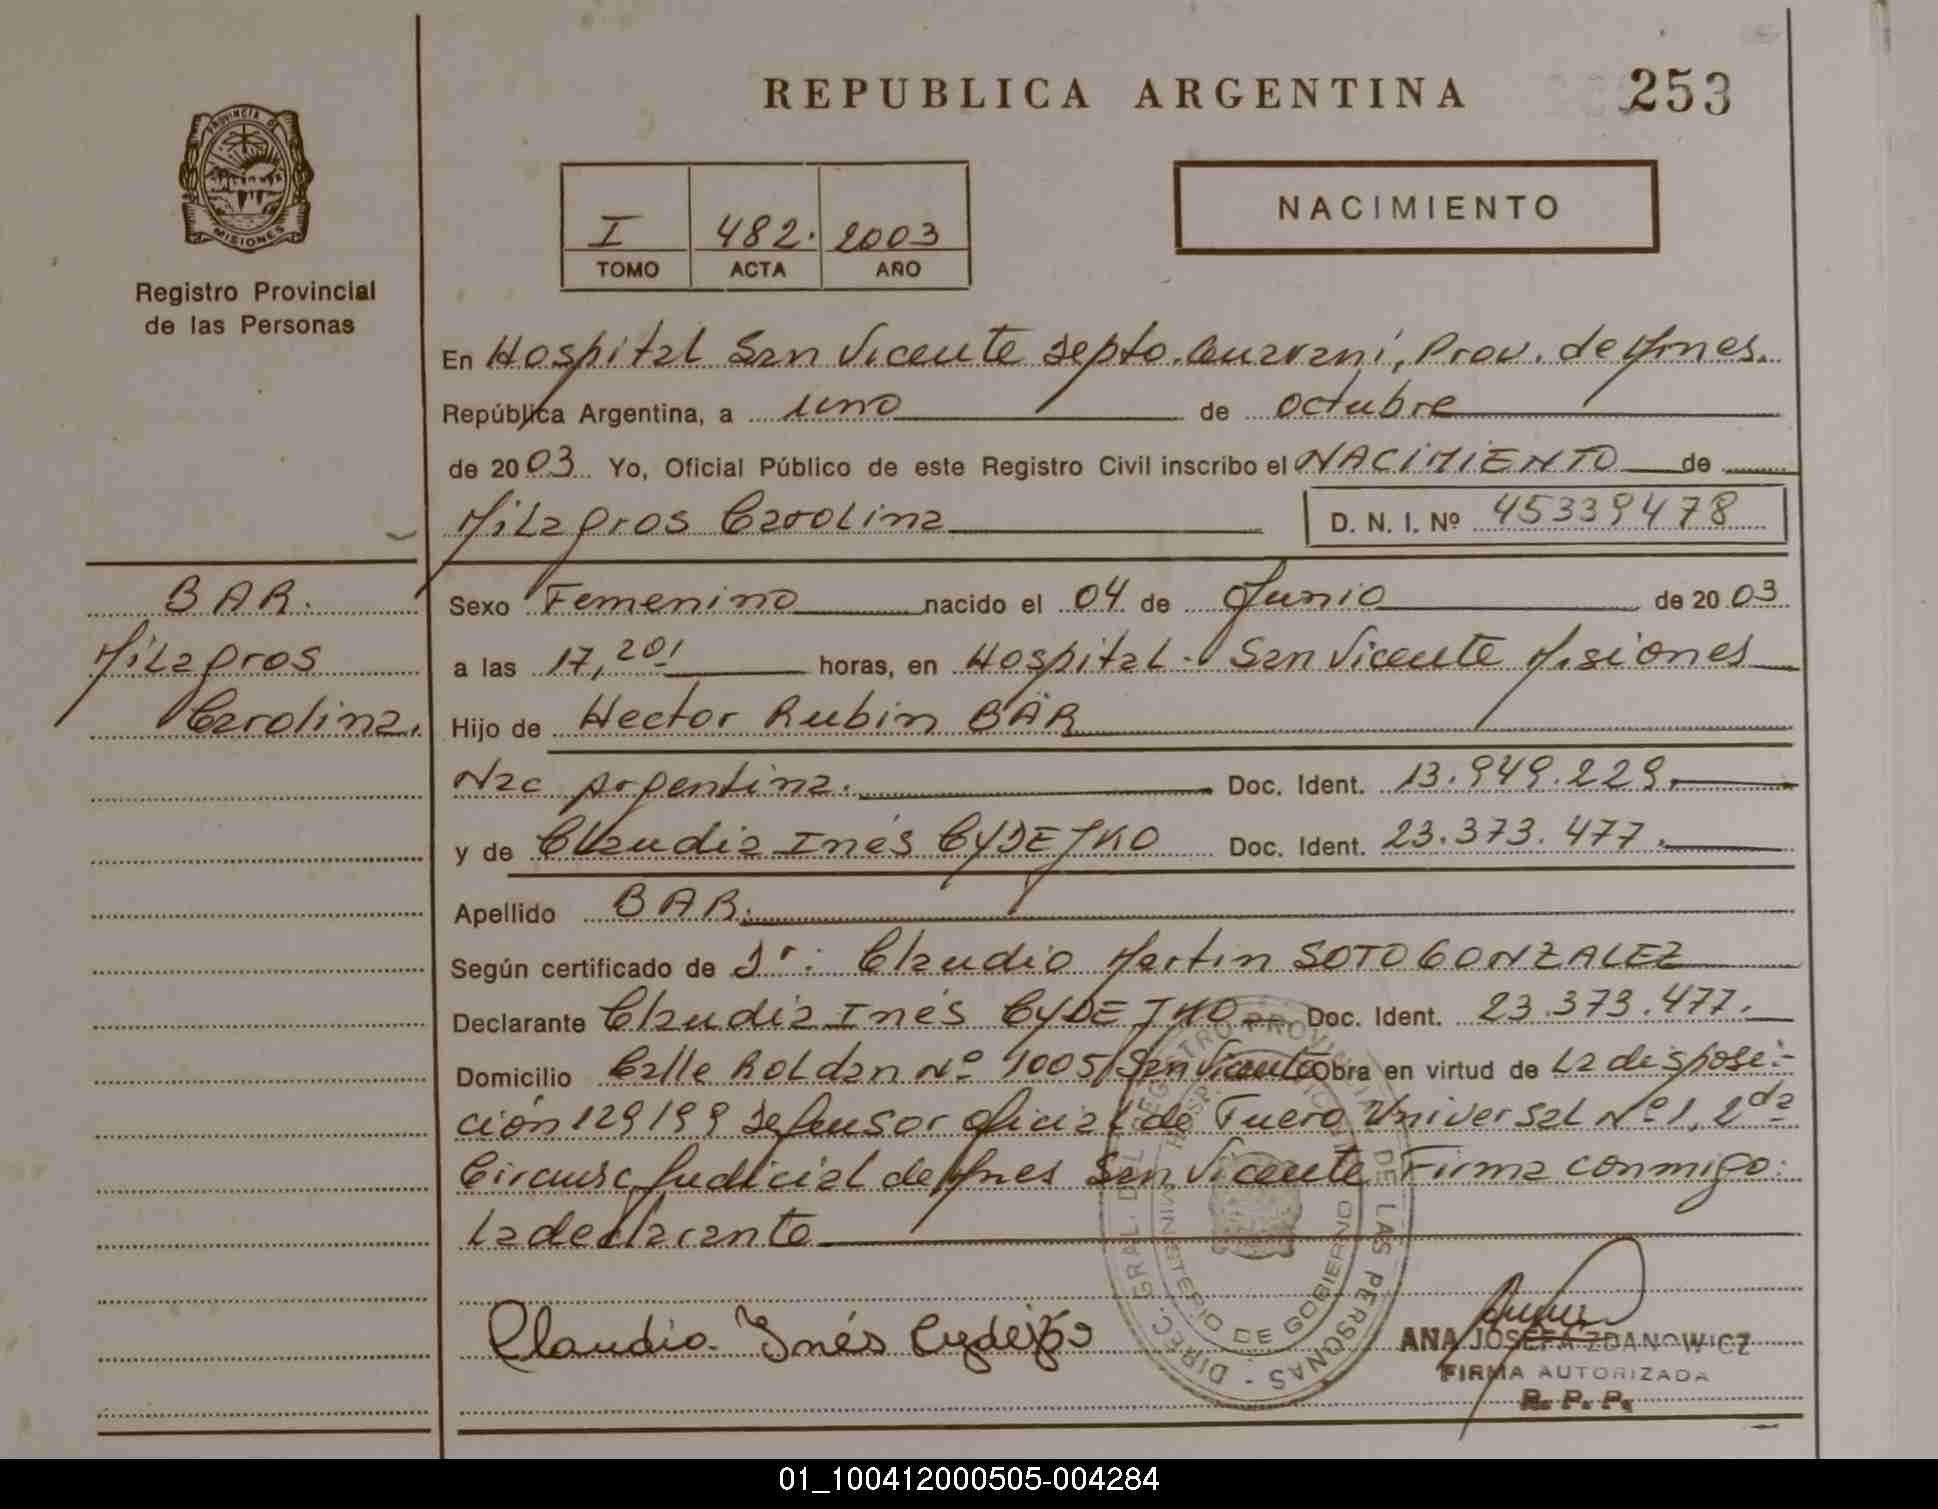 REPUBLICA ARGENTINA
253
PROVINCIA DE
MISIONES
Registro Provincial
de las Personas
I 482. 2003
TOMO ACTA AÑO
NACIMIENTO
En Hospital San Vicente Depto. Guaraní, Prov. de Mnes.
República Argentina, a uno de octubre
de 2003 Yo, Oficial Público de este Registro Civil inscribo el NACIMIENTO de
Milagros Carolina
D. N. I. Nº 45339478
BAR.
Milagros
Carolina.
Sexo Femenino nacido el 04 de Junio de 2003
a las 17,20' horas, en Hospital - San Vicente Misiones
Hijo de Hector Rubin BÄR
Nac Argentina. Doc. Ident. 13.949.229.
y de Claudia Inés CYDEJKO Doc. Ident. 23.373.477.
Apellido BAR.
Según certificado de Dr: Claudio Martin SOTO GONZALEZ
Declarante Claudia Inés CYDEJKO Doc. Ident. 23.373.477.
Domicilio Calle Roldan Nº 1005 San Vicente Obra en virtud de La disposi-
ción 129/99 Defensor oficial de Fuero Universal Nº 1, 2da
Circunsc Judicial de Mnes San Vicente Firma conmigo:
La declarante
Claudia Inés Cydejko
DIREC. GRAL. DEL REGISTRO PROVINCIAL DE LAS PERSONAS
MINISTERIO DE GOBIERNO
ANA JOSEFA ZDANOWICZ
FIRMA AUTORIZADA
R. P. P.
01_100412000505-004284